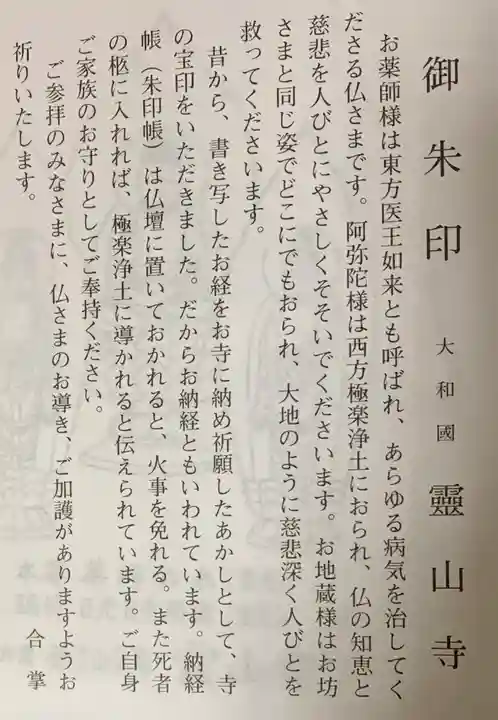 御朱印 大和國 靈山寺
お薬師様は東方医王如来とも呼ばれ、あらゆる病気を治してく
ださる仏さまです。阿弥陀様は西方極楽浄土におられ、仏の知恵と
慈悲を人びとにやさしくそそいでくださいます。お地蔵様はお坊
さまと同じ姿でどこにでもおられ、大地のように慈悲深く人びとを
救ってくださいます。
昔から、書き写したお経をお寺に納め祈願したあかしとして、寺
の宝印をいただきました。だからお納経ともいわれています。納経
帳（朱印帳）は仏壇に置いておかれると、火事を免れる。また死者
の柩に入れれば、極楽浄土に導かれると伝えられています。ご自身
ご家族のお守りとしてご奉持ください。
ご参拝のみなさまに、仏さまのお導き、ご加護がありますようお
祈りいたします。
合掌